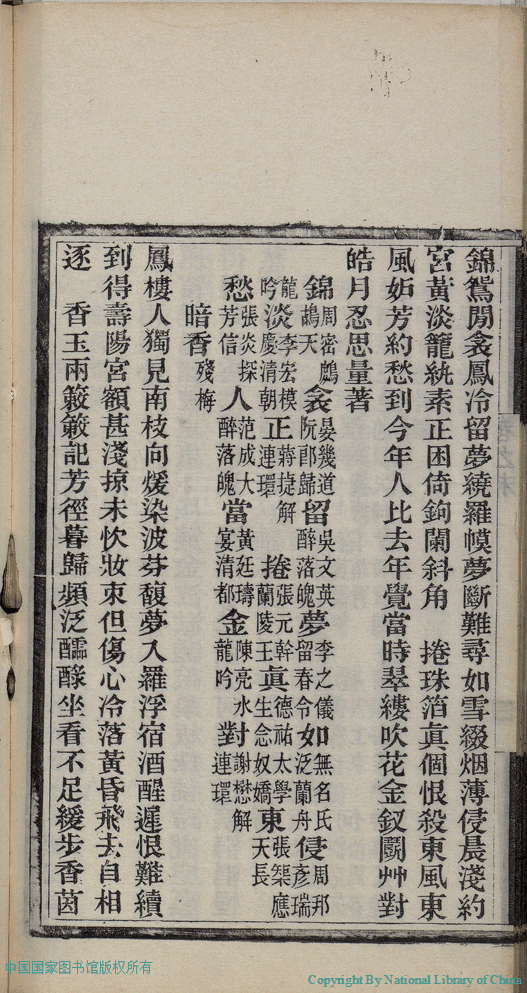 錦鴛閒衾鳳冷留夢繞羅幙夢斷難尋如雪綴烟薄侵晨淺約
宮黃淡籠紈素正困倚鉤闌斜角　捲珠箔真個恨殺東風東
風妬芳約愁到今年人比去年覺當時翠縷吹花金釵鬭艸對
皓月忍思量著
錦周密鷓鴣天衾晏幾道阮郎歸留吳文英醉落魄夢李之儀留春令如無名氏泛蘭舟侵周邦彥瑞
龍吟淡李宏模慶清朝正蔣捷解連環捲張元幹蘭陵王真德祐太學生念奴嬌東張榘應天長
愁張炎探芳信人范成大醉落魄當黃廷璹宴清都金陳亮水龍吟對謝懋解連環
暗香殘梅
鳳樓人獨見南枝向煖染波芬馥夢入羅浮宿酒醒遲恨難續
到得壽陽宮額甚淺掠未忺妝束但傷心冷落黃昏飛去自相
逐　香玉兩簌簌記芳徑暮歸頻泛醽醁坐看不足緩步香茵
中国国家图书馆版权所有
Copyright By National Library of China